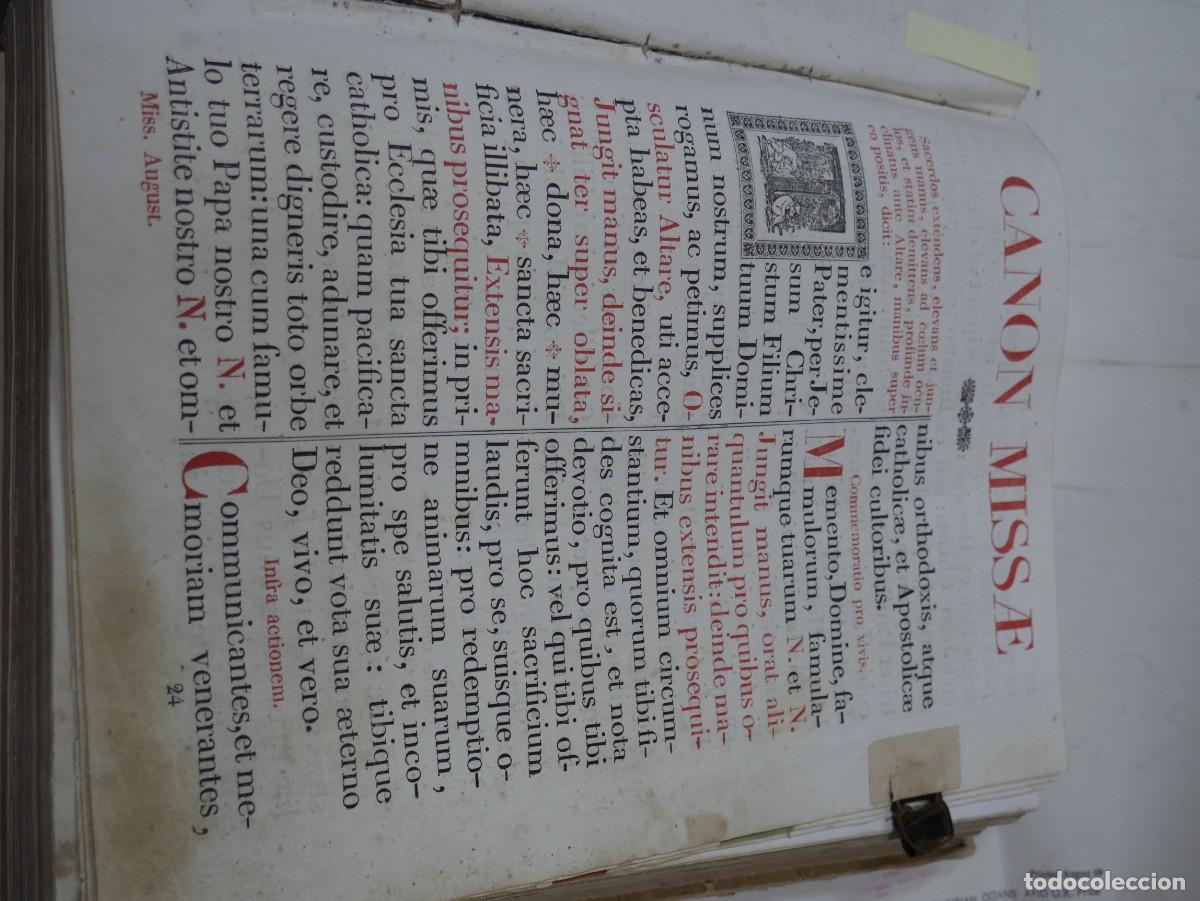 CANON MISSÆ
sacerdos extendens, elevans et jun-
gens manus, elevans ad cœlum ocu-
los, et statim demittens, profunde in-
clinatus ante Altare, manibus super
eo positis, dicit:
Te igitur, cle-
mentissime
Pater, per Je-
sum Chri-
stum Filium
tuum Domi-
num nostrum, supplices
rogamus, ac petimus, O-
sculatur Altare, uti acce-
pta habeas, et benedicas,
Jungit manus, deinde si-
gnat ter super oblata,
hæc ✠ dona, hæc ✠ mu-
nera, hæc ✠ sancta sacri-
ficia illibata, Extensis ma-
nibus prosequitur; in pri-
mis, quæ tibi offerimus
pro Ecclesia tua sancta
catholica: quam pacifica-
re, custodire, adunare, et
regere digneris toto orbe
terrarum: una cum famu-
lo tuo Papa nostro N. et
Antistite nostro N. et om-
Miss. August.
nibus orthodoxis, atque
catholicæ, et Apostolicæ
fidei cultoribus.
Commemoratio pro vivis.
Memento, Domine, fa-
mulorum, famula-
rumque tuarum N. et N.
Jungit manus, orat ali-
quantulum pro quibus o-
rare intendit: deinde ma-
nibus extensis prosequi-
tur. Et omnium circum-
stantium, quorum tibi fi-
des cognita est, et nota
devotio, pro quibus tibi
offerimus: vel qui tibi of-
ferunt hoc sacrificium
laudis, pro se, suisque o-
mnibus: pro redemptio-
ne animarum suarum,
pro spe salutis, et inco-
lumitatis suæ: tibique
reddunt vota sua æterno
Deo, vivo, et vero.
Infra actionem.
Communicantes, et me-
moriam venerantes,
24
todocoleccion